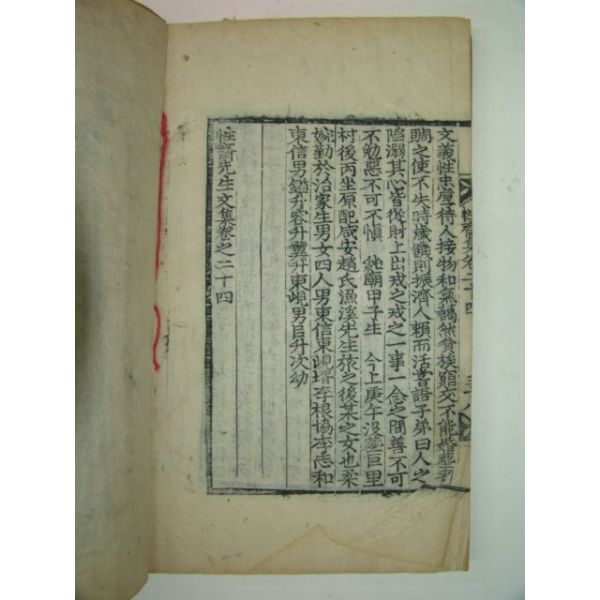 性齋集卷二十四
文義性忠厚待人接物和氣藹然貧族窮交不能婚葬者
賙之使不失時歲饑則振濟人賴而活嘗語子弟曰人之
陷溺其心皆從財上出戒之戒之一事一念之間善不可
不勉惡不可不愼 純廟甲子生 今上庚午沒葬巨里
村後丙坐原配咸安趙氏漁溪先生旅之後某之女也柔
婉勤於治家生男女四人男東信東峴壻李根協李志和
東信男鑑升容升翼升東峴男呂升次幼
性齋先生文集卷之二十四